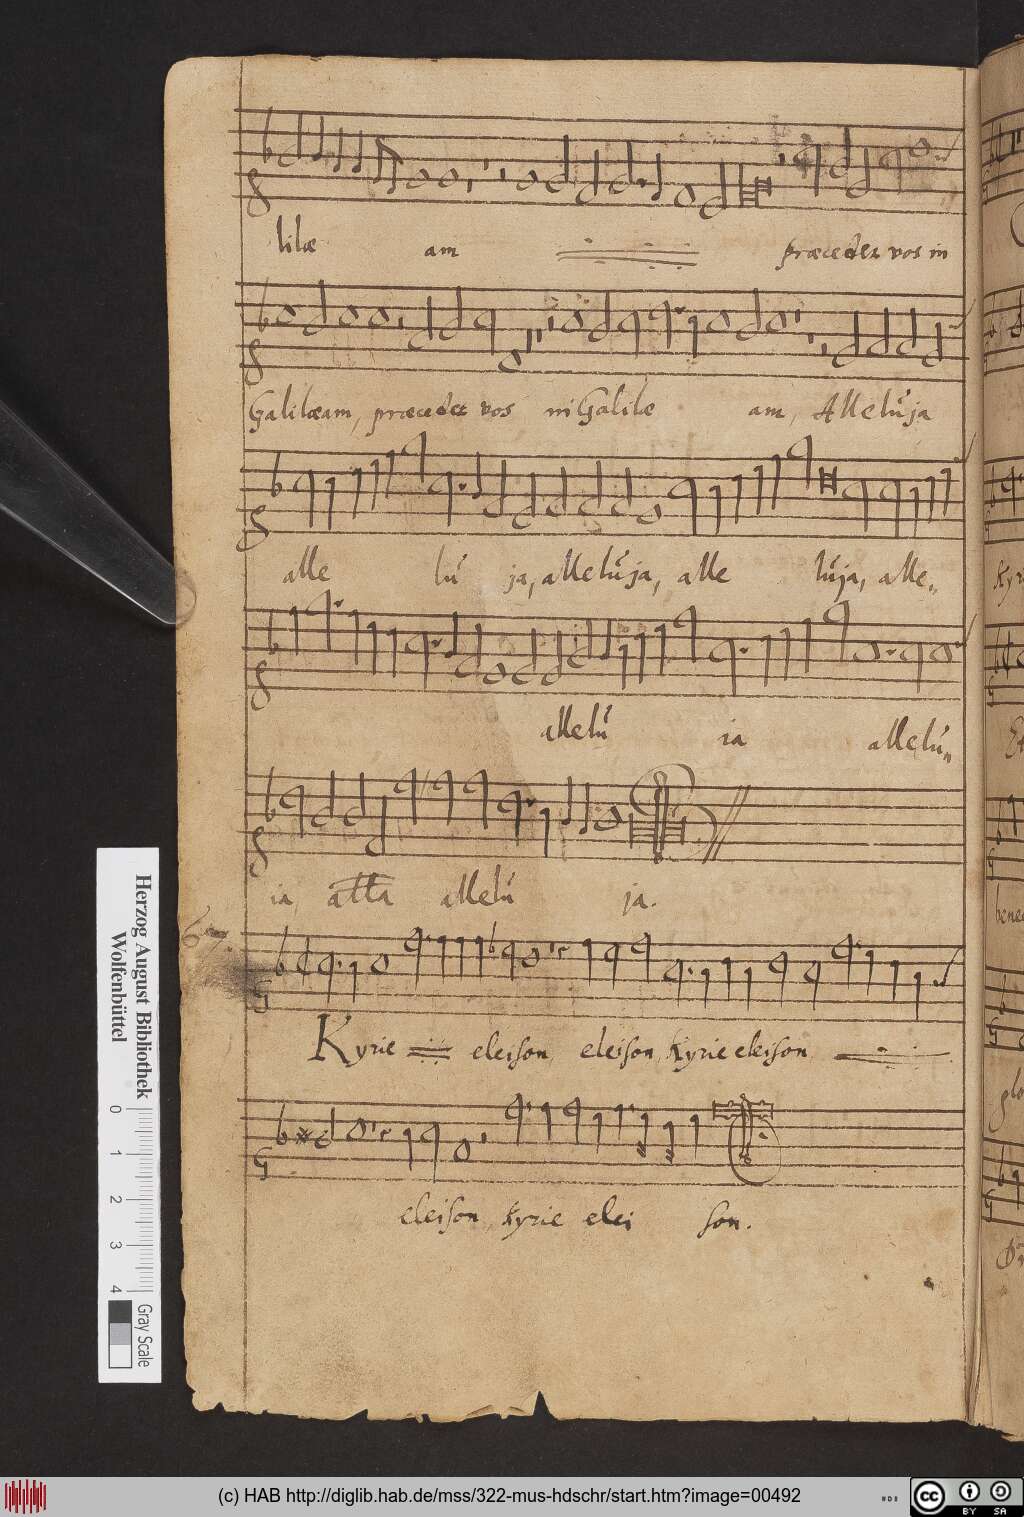 lilæ am præcedet vos in
Galilæam, præcedet vos in Galile am, Allelúja
alle lú ja, allelúja, alle lúja, alle„
allelú ia allelú„
ia alla allelú ja.
67.
Kyrie eleison, eleison, Kyrie eleison
eleison, kyrie elei son.
Herzog August Bibliothek
Wolfenbüttel
0 1 2 3 4
Gray Scale
(c) HAB http://diglib.hab.de/mss/322-mus-hdschr/start.htm?image=00492
cc BY SA